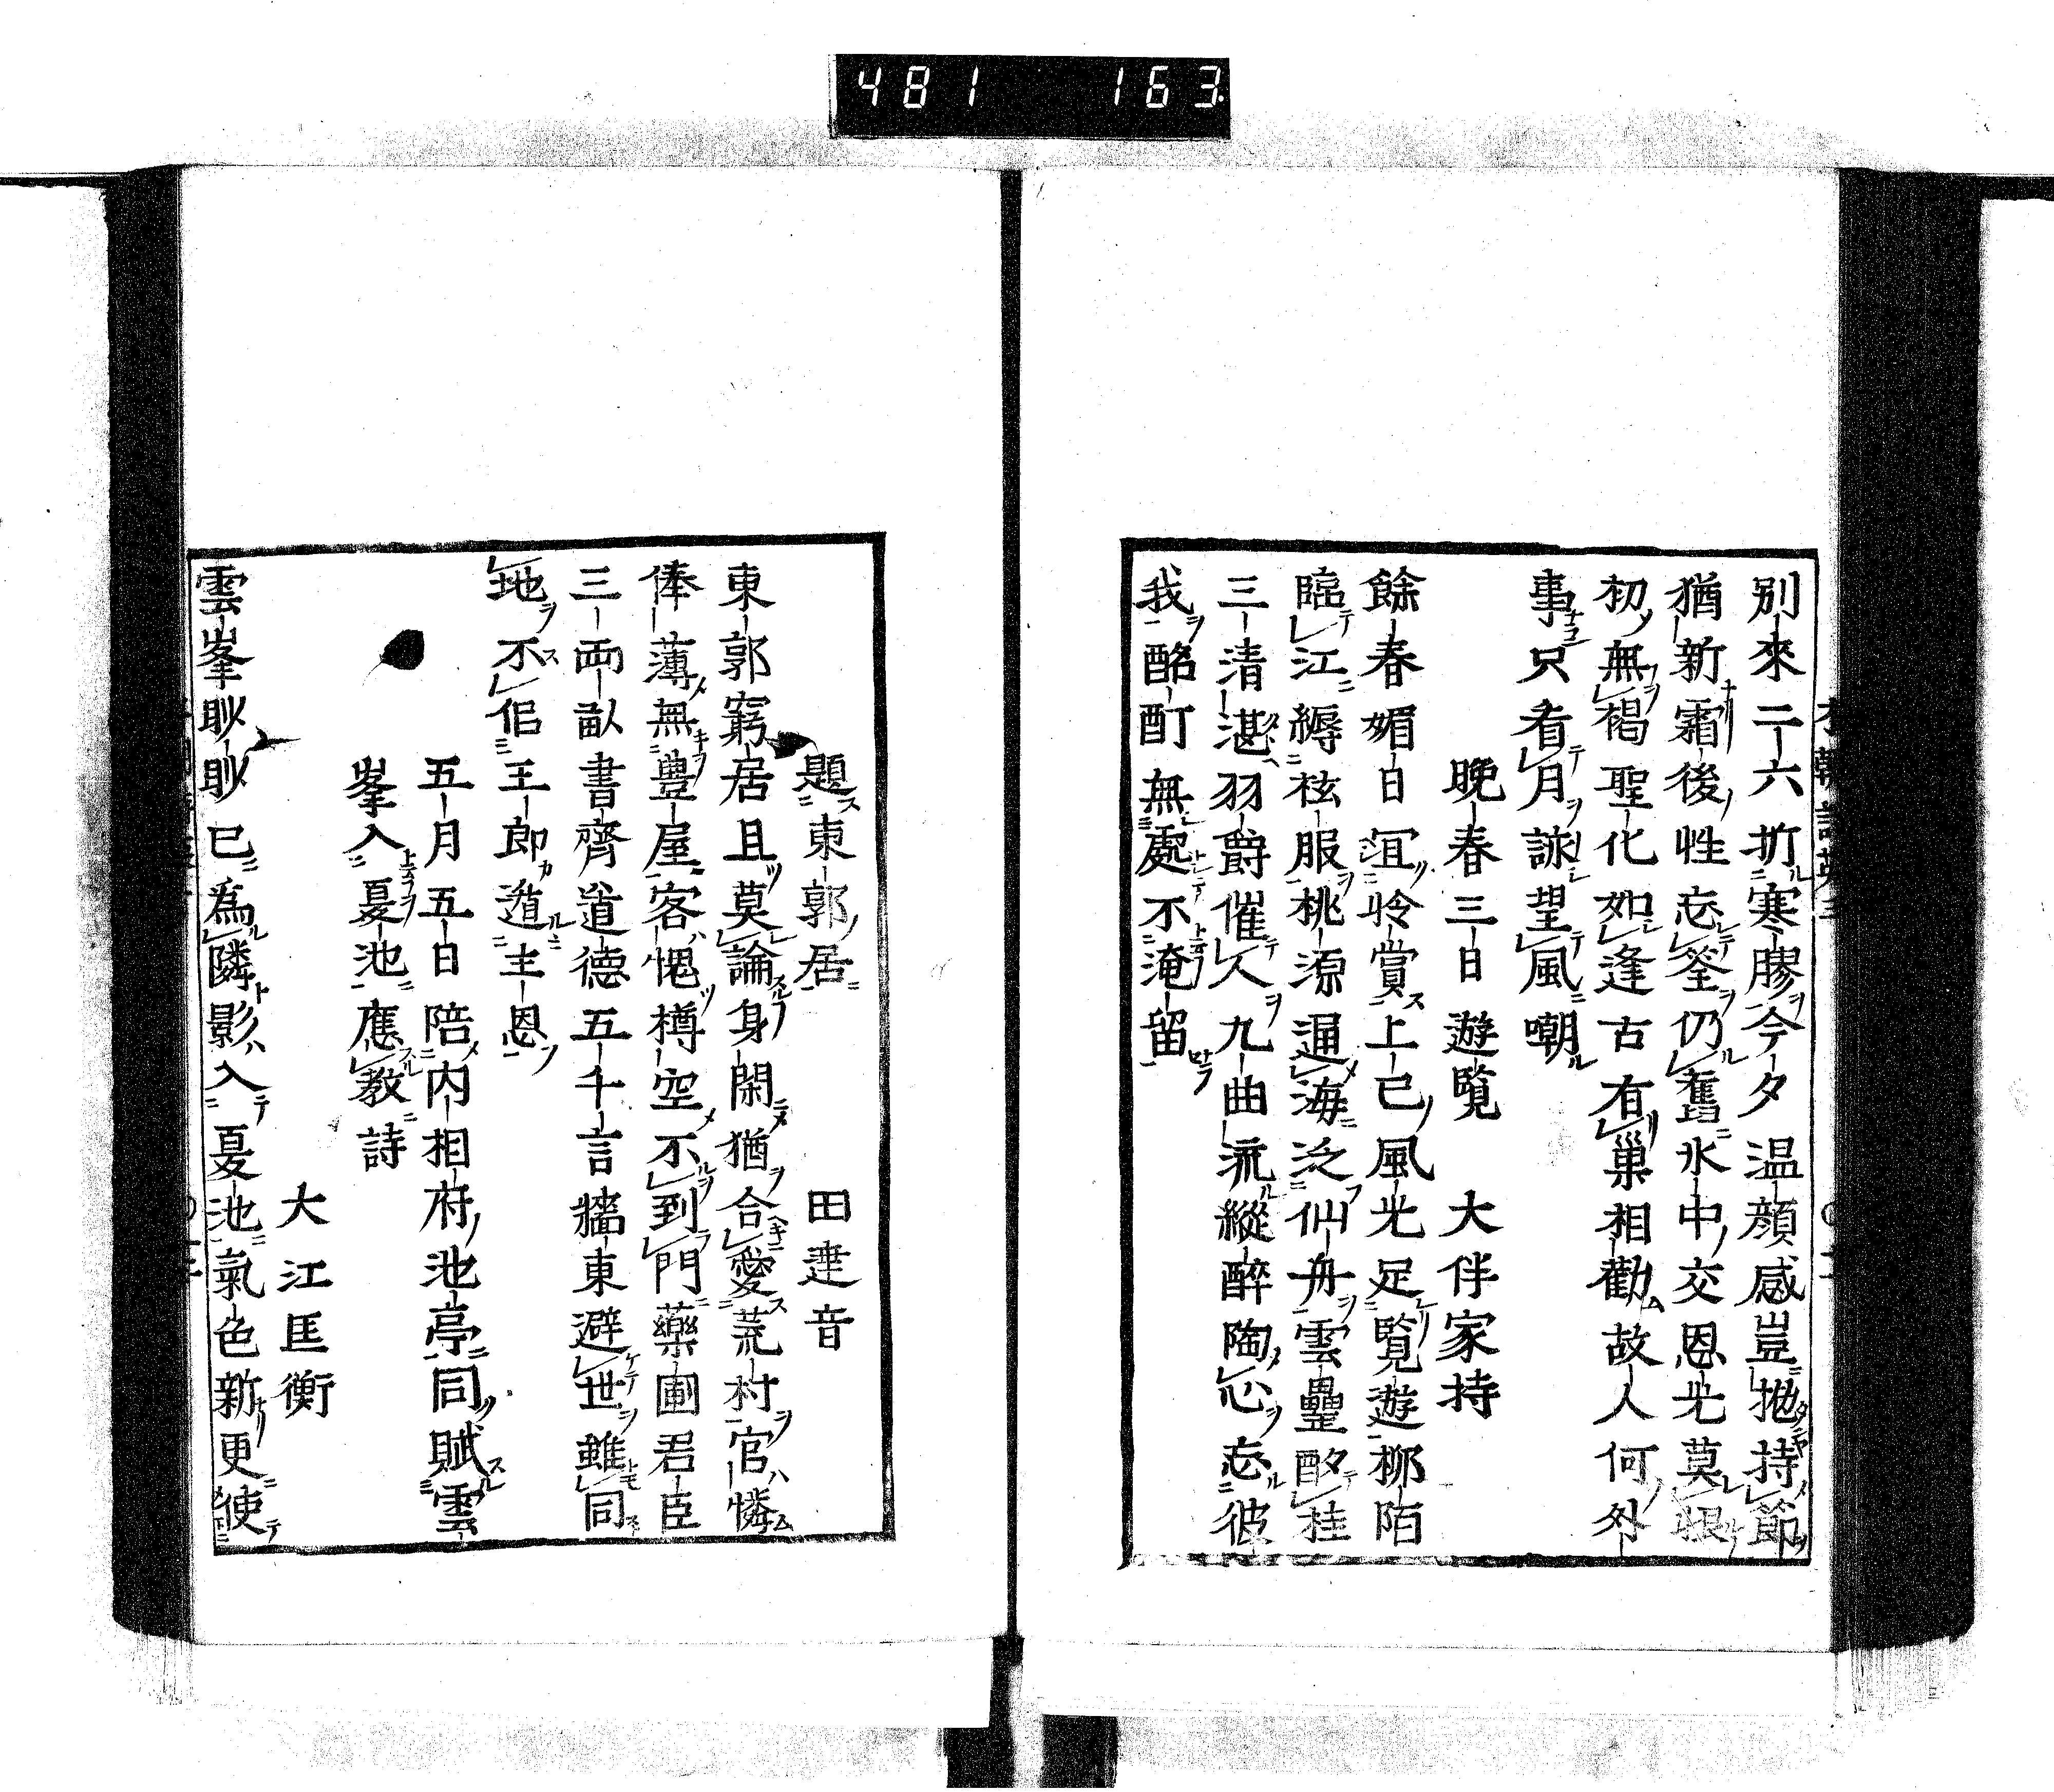 481 163
別來二六折寒膠今夕温顔感豈抛持節
猶新霜後性忘筌仍舊水中交恩光莫恨
初無褐聖化如逢古有巢相勸故人何外
事只看月詠望風嘲
晩春三日遊覧 大伴家持
餘春媚日冝怜賞上巳風光足覧遊柳陌
臨江縟袨服桃源通海泛仙舟雲罍酌桂
三清湛羽爵催人九曲流縱醉陶心忘彼
我酩酊無處不淹留
題東郭居 田達音
東郭窮居且莫論身閑猶合愛荒村官憐
俸薄無豊屋客愧樽空不到門藥圃君臣
三兩畝書齊道德五千言牆東避世雖同
地不侶王郎遁主恩
五月五日陪内相府池亭同賦雲
峯入夏池應教詩
大江匡衡
雲峯眇眇已爲隣影入夏池氣色新更使